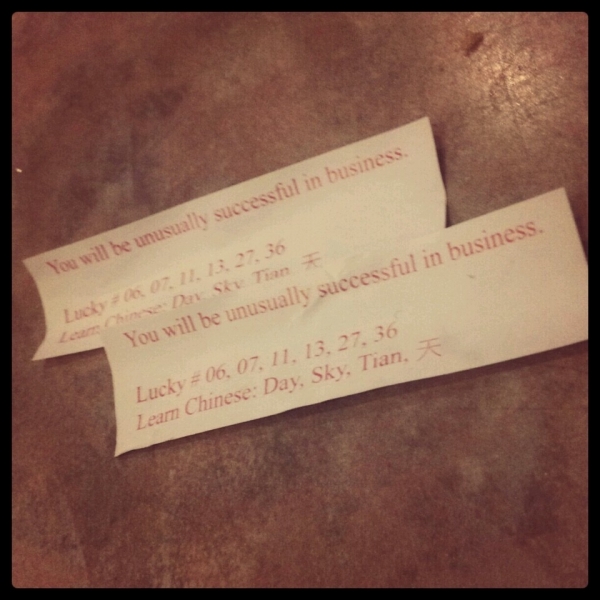 You will be unusually successful in business.
Lucky # 06, 07, 11, 13, 27, 36
Learn Chinese: Day, Sky, Tian, 天
You will be unusually successful in business.
Lucky # 06, 07, 11, 13, 27, 36
Learn Chinese: Day, Sky, Tian, 天